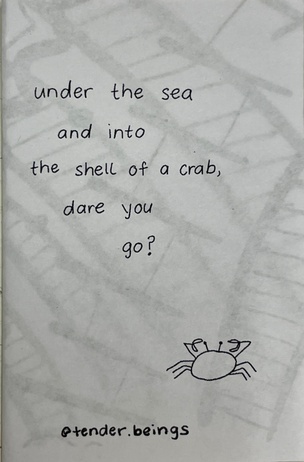 under the sea
and into
the shell of a crab,
dare you
go?
@tender.beings